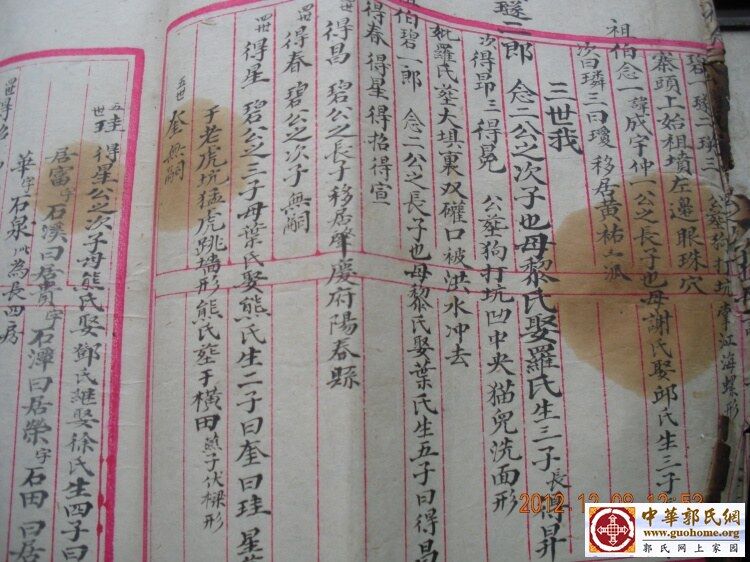 碧 璲 璘 三
公葬狗打坑掌江海螺形
寨頭上始祖墳左邊眼珠穴
祖伯念一諱成字仲一公之長子也母謝氏娶邱氏生三子
次曰璘三曰瓊移居黃祐一派
三世我
璲二郎 念二公之次子也母黎氏娶羅氏生三子長得昇
次得昂三得晃 公葬狗打坑凹中央猫兒洗面形
妣羅氏葬大埧裏双礶口被洪水冲去
伯碧一郎 念二公之長子也母黎氏娶葉氏生五子曰得昌
得春得星得招得宣
得昌 碧公之長子移居肇慶府陽春縣
四世得春 碧公之次子無嗣
四世得星 碧公之三子母葉氏娶熊氏生二子曰奎曰珪 星
于老虎坑猛虎跳墻形熊氏塟于橫田燕子伏樑形
五世奎無嗣
五世珪 得星公之次子母熊氏娶鄧氏継娶徐氏生四子曰
居富字石溪曰居貴字石潭曰居榮字石田曰居
華字石泉此為長四房
四世得招
2012.12.08 12:53
中華郭氏網
www.guohome.org
郭氏网上家园